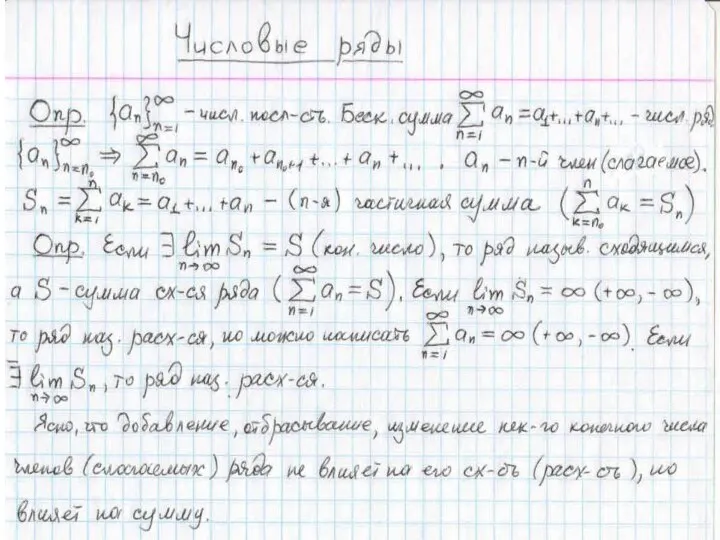 Числовые ряды
Опр. {aₙ}ₙ₌₁^∞ - числ. посл-сть. Беск. сумма ∑ₙ₌₁^∞ aₙ = a₁+...+aₙ+... - числ. ряд
{aₙ}ₙ₌ₙ₀^∞ ⇒ ∑ₙ₌ₙ₀^∞ aₙ = aₙ₀ + aₙ₀₊₁ +...+ aₙ +... . aₙ - n-й член (слагаемое).
Sₙ = ∑ₖ₌₁ⁿ aₖ = a₁+...+aₙ - (n-я) частичная сумма (∑ₖ₌ₙ₀ⁿ aₖ = Sₙ)
Опр. Если ∃ lim n→∞ Sₙ = S (кон. число), то ряд назыв. сходящимся,
а S - сумма сх-ся ряда (∑ₙ₌₁^∞ aₙ = S). Если lim n→∞ Sₙ = ∞ (+∞, -∞),
то ряд наз. расх-ся, но можно написать ∑ₙ₌₁^∞ aₙ = ∞ (+∞, -∞). Если
∃ lim n→∞ Sₙ, то ряд наз. расх-ся.
Ясно, что добавление, отбрасывание, изменение нек-го конечного числа
членов (слагаемых) ряда не влияет на его сх-сть (расх-сть), но
влияет на сумму.